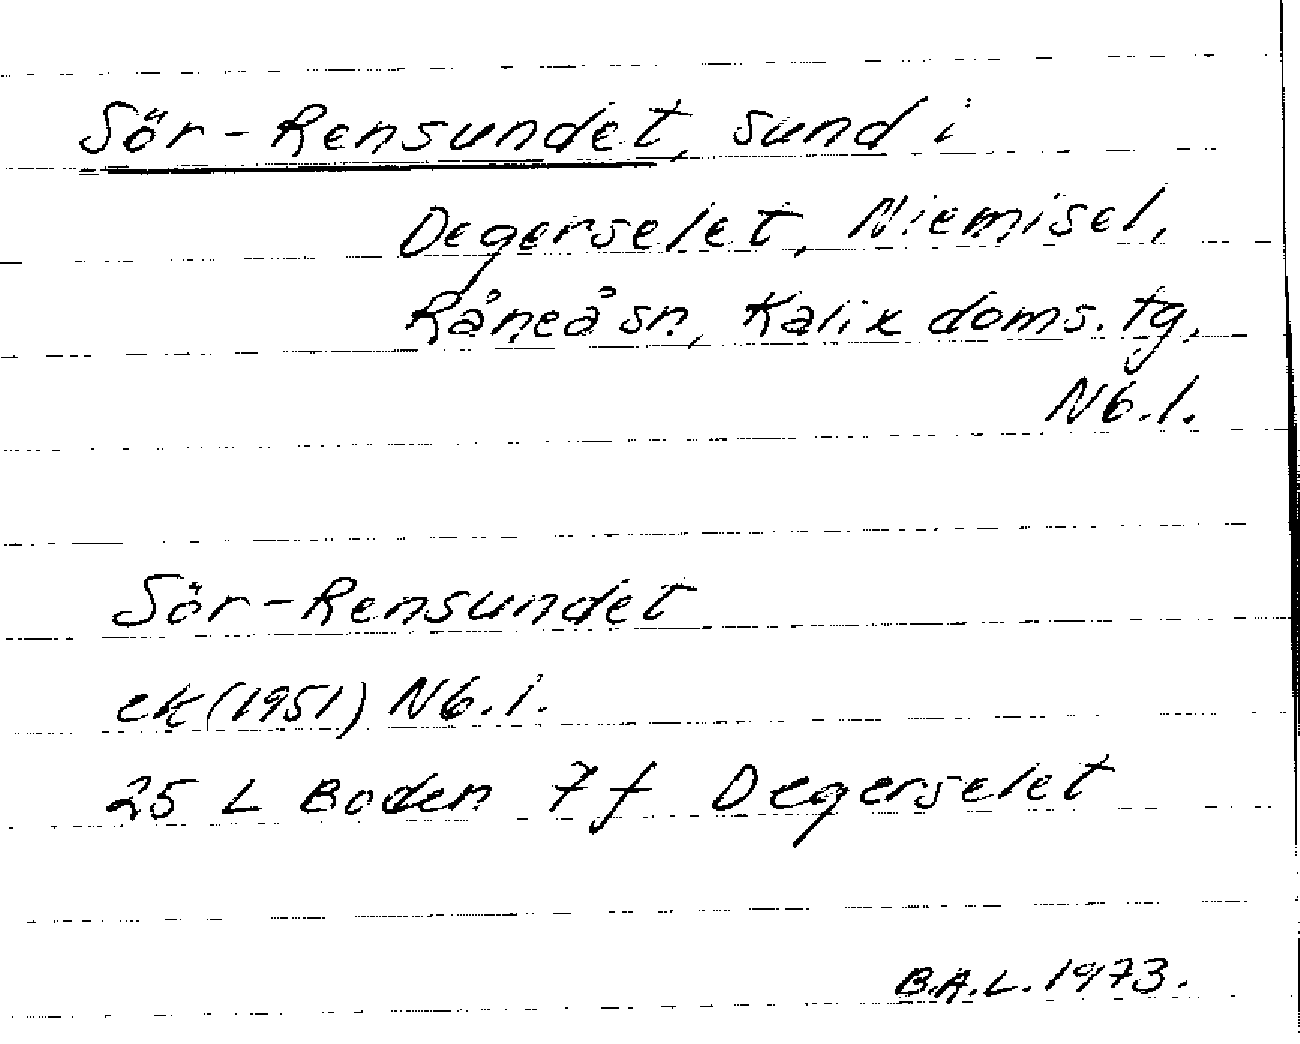 Sör-Rensundet, sund i
Degerselet, Niemisel,
Råneå sn, Kalix doms. tg,
Nb.l.
Sör-Rensundet
ek (1951) Nb.l.
25 L Boden 7 f Degerselet
B.A.L. 1973.